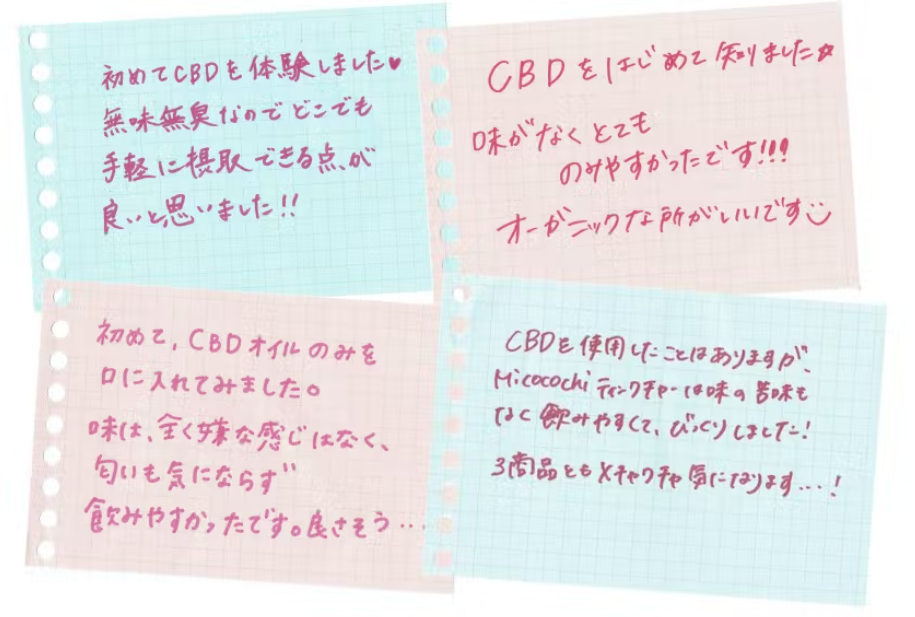 初めてCBDを体験しました♥
無味無臭なのでどこでも
手軽に摂取できる点が
良いと思いました!!
CBDをはじめて知りました☆
味がなくとても
のみやすかったです!!!
オーガニックな所がいいです
初めて,CBDオイルのみを
口に入れてみました。
味は、全く嫌な感じはなく、
匂いも気にならず
飲みやすかったです。良さそう…
CBDを使用したことはありますが、
Micocochiティンクチャーは味の苦味も
なく飲みやすくて、びっくりしました!
3商品ともメチャクチャ気になります…!